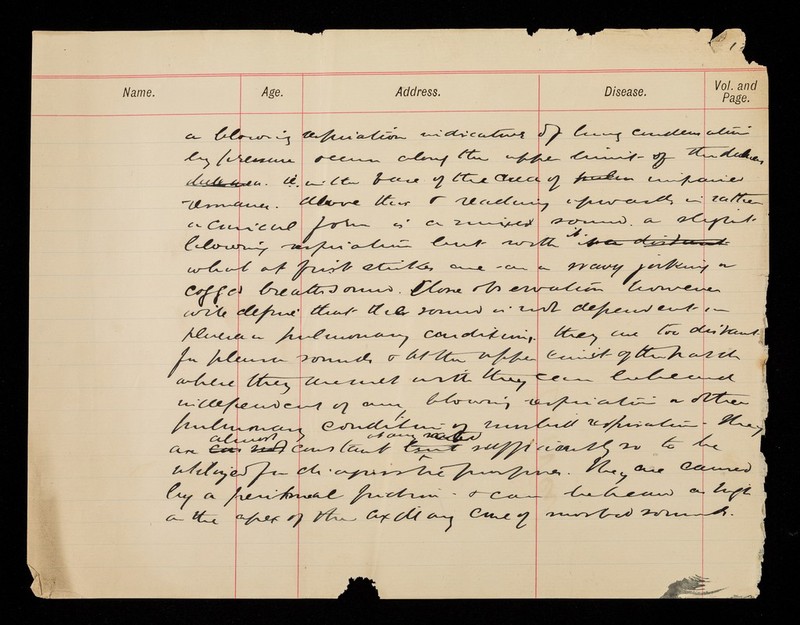 Name. Age. Address. Disease. Vol. and Page.
a blowing respiration indicative of lung condensation
by pressure occurs along the upper limit of the dulness
in the base of the area of impaired
resonance. Above this & reaching upwards in rather
a conical form is a mixed sound. a slight
blowing respiration but with it is a distant
what at first strikes one as a wavy jerking or
cogged breath sound. Close observation however
will define that this sound is not dependent on
pleural or pulmonary conditions. they are too distant
for pleural sounds & at the upper limit of the
where they are met with they can be heard
independent of any blowing respiration or other
pulmonary condition of morbid respiration. They
are almost constant sufficiently so to be
utilized for diagnostic purposes. They are caused
by a peritoneal friction & can be heard as high
as the apex of the axillary cone of morbid sounds.